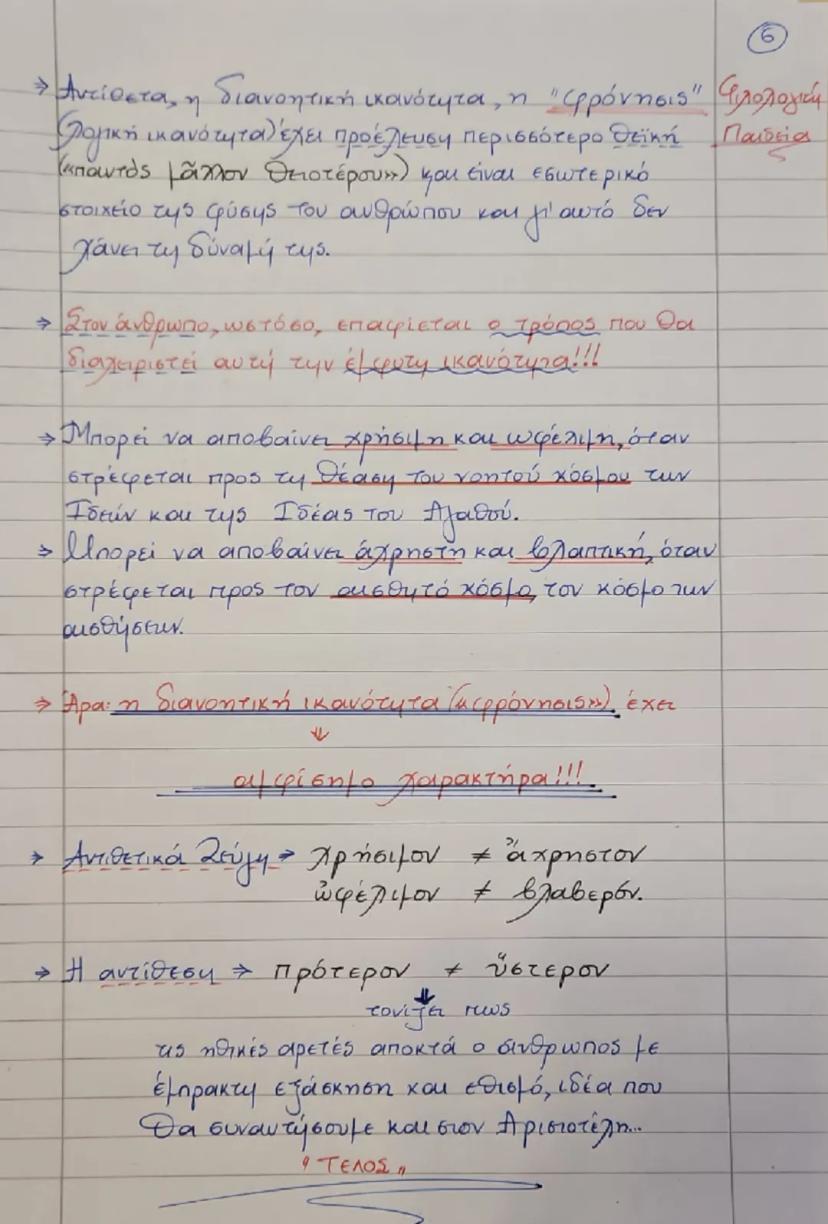 6
⇒ Αντίθετα, η διανοητική ικανότητα, η "φρόνησις"
Φιλολογική
(λογική ικανότητα) έχει προέλευση περισσότερο θεϊκή
Παιδεία
(«παντὸς μᾶλλον θειοτέρου») και είναι εσωτερικό
στοιχείο της φύσης του ανθρώπου και γι' αυτό δεν
χάνει τη δύναμή της.
⇒ Στον άνθρωπο, ωστόσο, επαφίεται ο τρόπος που θα
διαχειριστεί αυτή την έμφυτη ικανότητα!!!
⇒ Μπορεί να αποβαίνει χρήσιμη και ωφέλιμη, όταν
στρέφεται προς τη θέαση του νοητού κόσμου των
Ιδεών και της Ιδέας του Αγαθού.
⇒ Μπορεί να αποβαίνει άχρηστη και βλαπτική, όταν
στρέφεται προς τον αισθητό κόσμο, τον κόσμο των
αισθήσεων.
⇒ Άρα: η διανοητική ικανότητα («φρόνησις») έχει
⇓
αμφίσημο χαρακτήρα!!!
⇒ Αντιθετικά Ζεύγη ⇒ χρήσιμον ≠ ἄχρηστον
ὠφέλιμον ≠ βλαβερόν.
⇒ Η αντίθεση ⇒ πρότερον ≠ ὕστερον
⇓
τονίζει πως
τις ηθικές αρετές αποκτά ο άνθρωπος με
έμπρακτη εξάσκηση και εθισμό, ιδέα που
θα συναντήσουμε και στον Αριστοτέλη...
"ΤΕΛΟΣ"